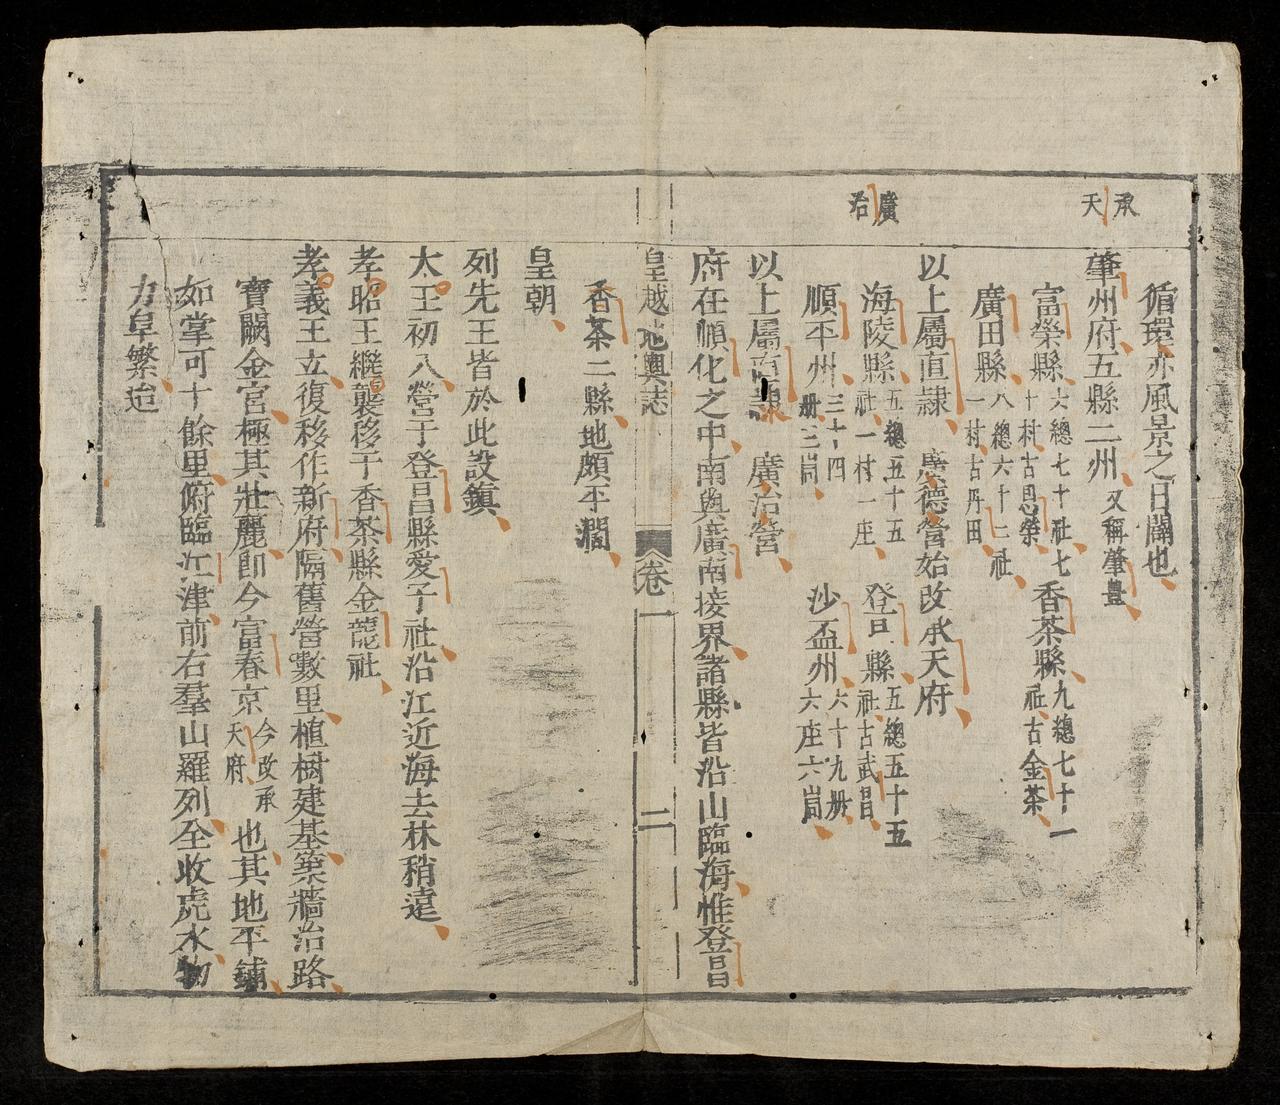 承天
廣治
循環亦風景之日闢也
肇州府五縣二州又稱肇豊
富榮縣六總七十社七十村古思榮 香茶縣九總七十一社古金茶
廣田縣八總六十二社一村古丹田
以上屬直隸 廣德營始改承天府
海陵縣五總五十五社一村一庄 登昌縣五總五十五社古武昌
順平州三十四册三峝 沙盃州六十九册六庄六峝
以上屬直隸 廣治營
府在順化之中南與廣南接界諸縣皆沿山臨海惟登昌
皇越地輿誌 卷一 二
香茶二縣地頗平濶
皇朝
列先王皆於此設鎮
太王初八營于登昌縣愛子社沿江近海去林稍遠
孝昭王繼襲移于香茶縣金龍社
孝義王立復移作新府隔舊營數里植樹建基築牆治路
寶闕金宮極其壯麗卽今富春京今改承天府也其地平鋪
如掌可十餘里俯臨江津前右羣山羅列全收虎水物
力阜繁迨